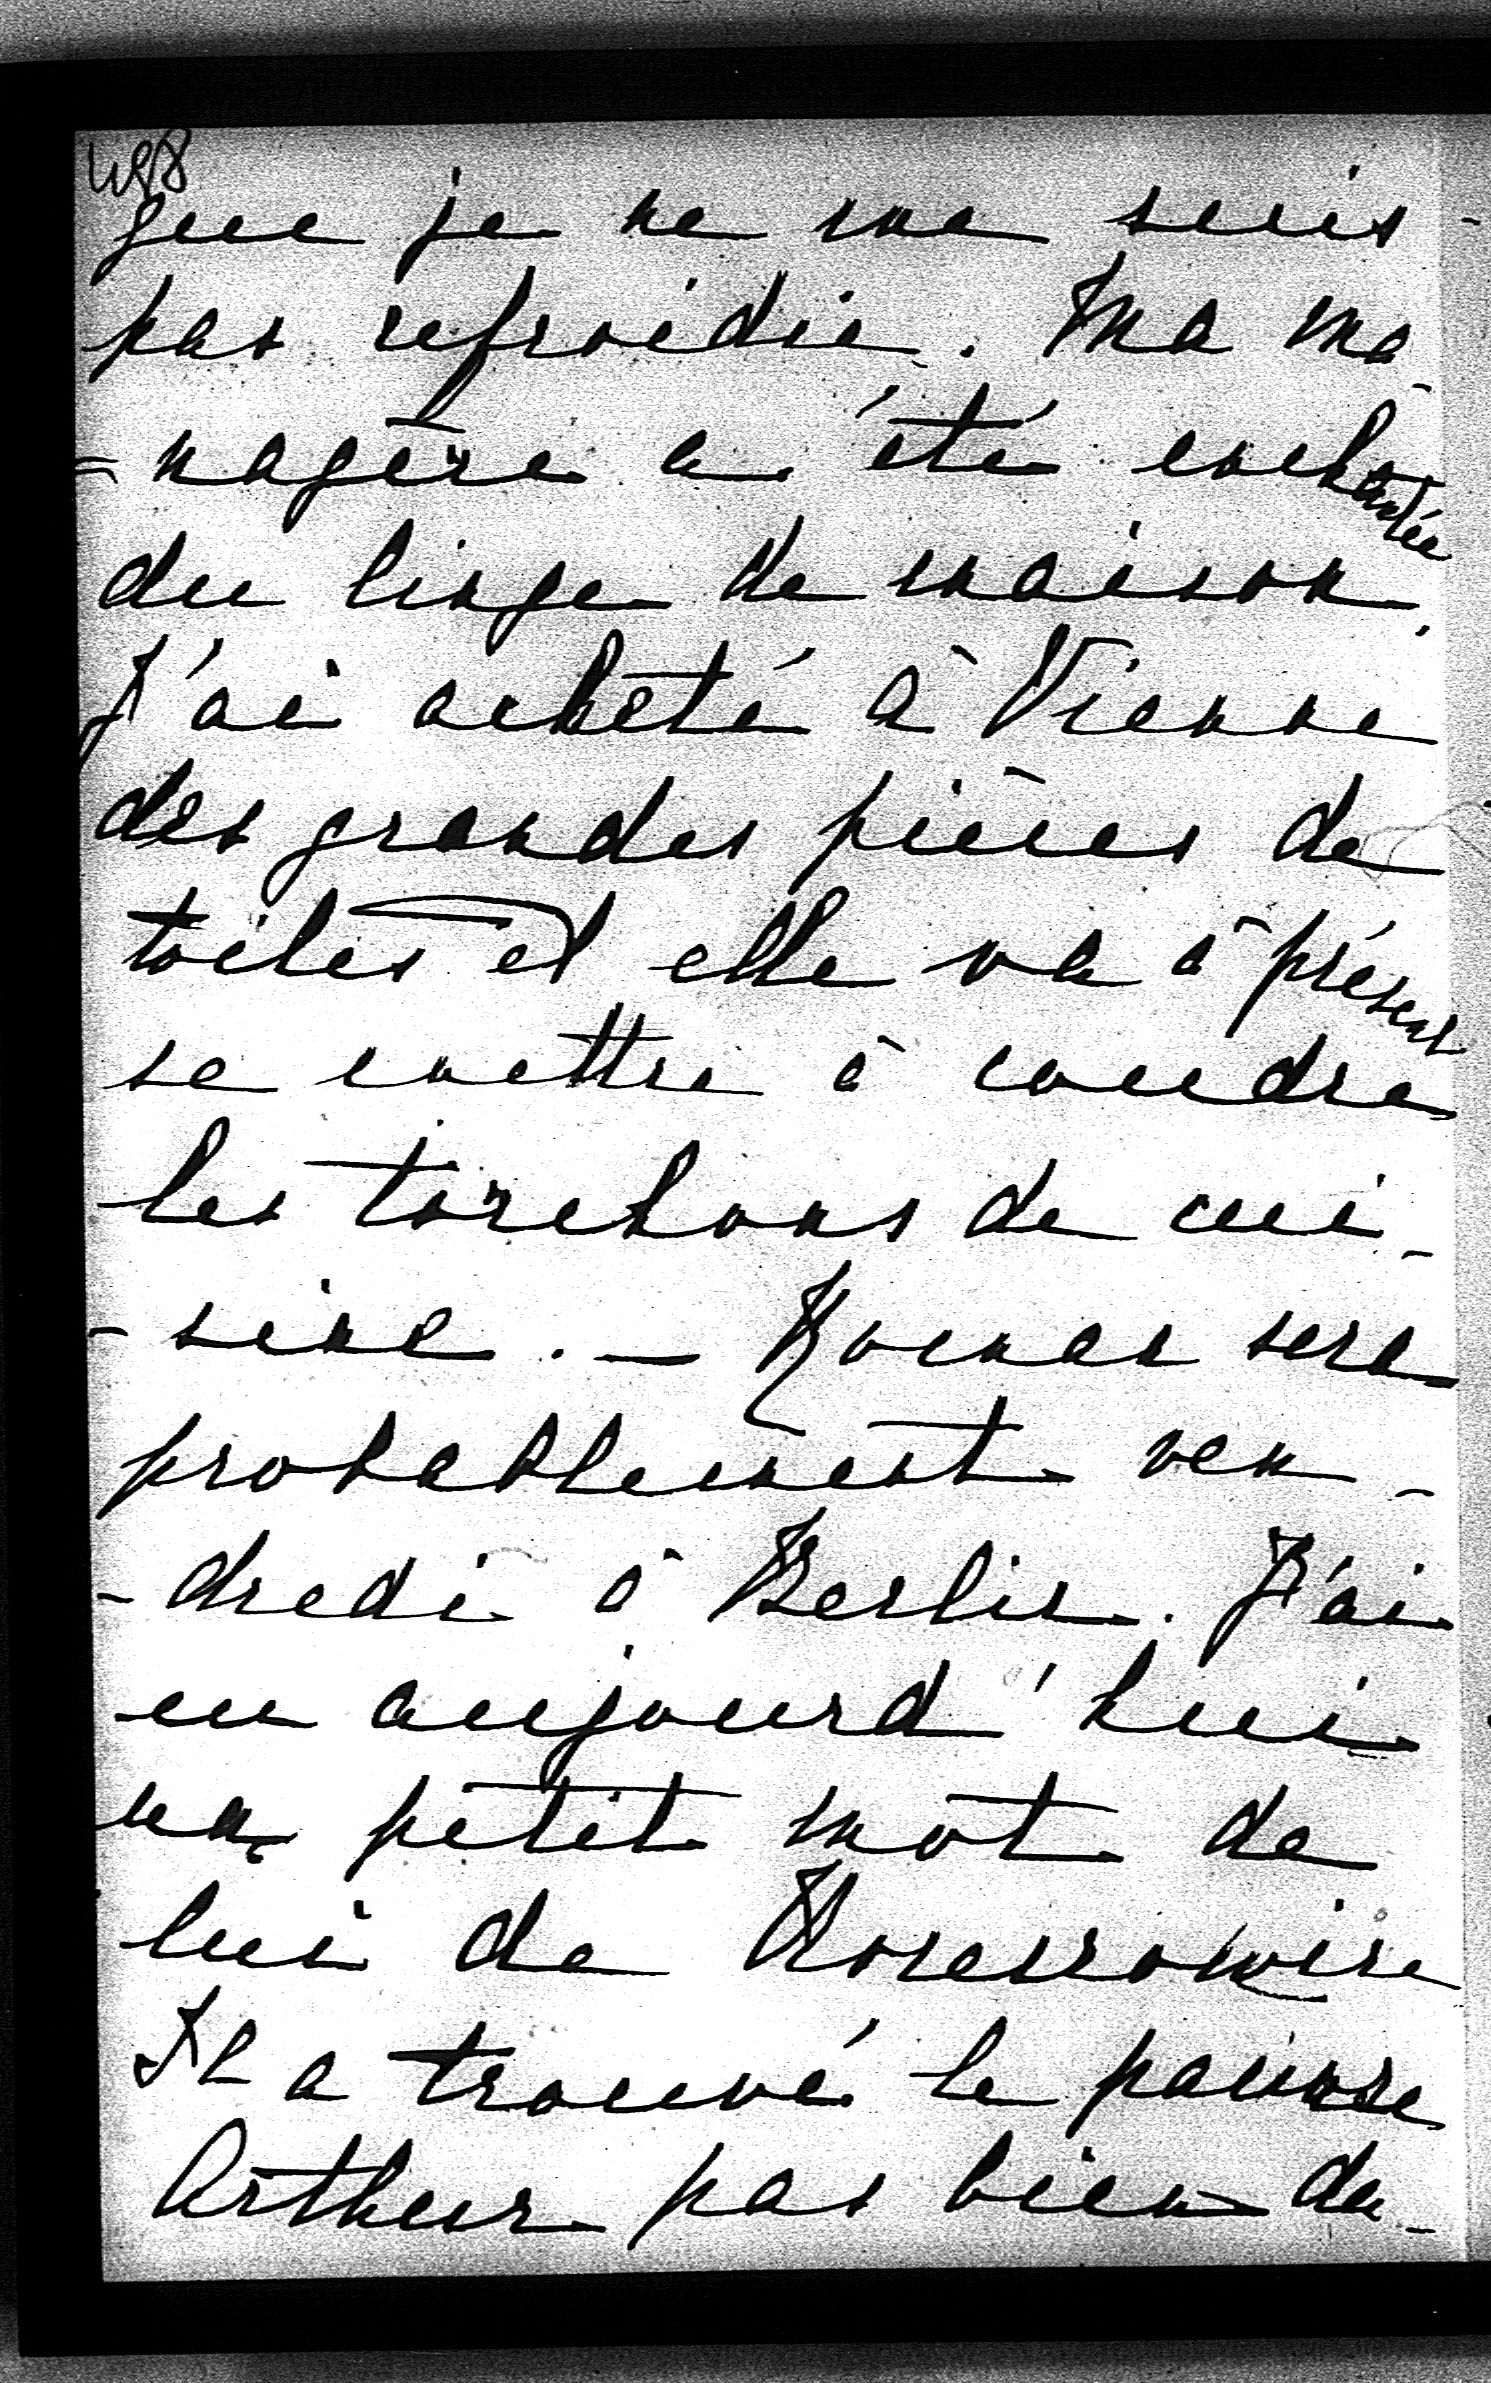 498
que je ne me suis
pas refroidie. Ma mé-
-nagère a été enchantée
du linge de maison.
J'ai acheté à Vienne
des grandes pièces de
toiles et elle va à présent
se mettre à coudre
les torchons de cui-
-sine. — Roman sera
probablement ven-
-dredi à Berlin. J'ai
eu aujourd'hui
un petit mot de
lui de
Il a trouvé le pauvre
Arthur pas bien du